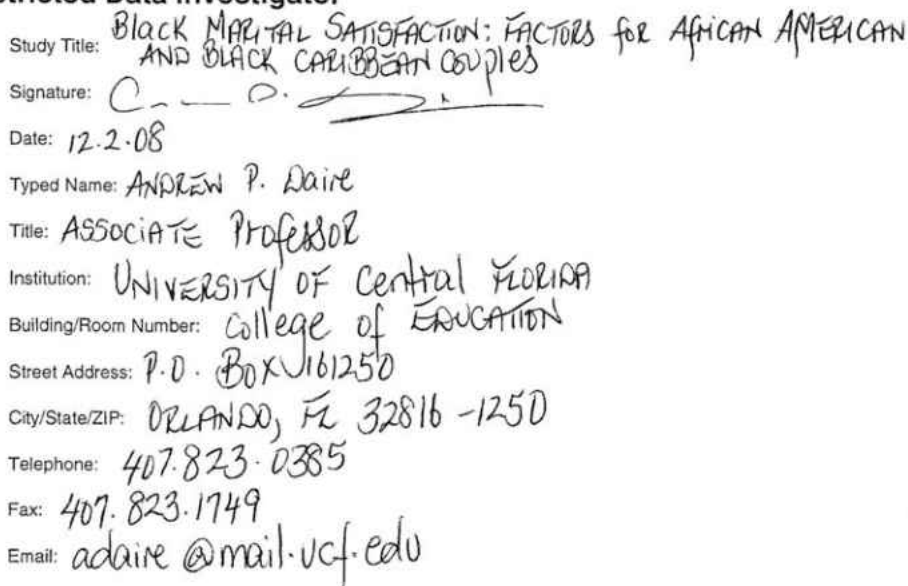 Data Investigator
Study Title: Black MARITAL SATISFACTION: FACTORS for AfRICAN AMERICAN
AND BLACK CARIBBEAN COUPles
Signature:
Date: 12.2.08
Typed Name: ANDREW P. Daire
Title: ASSOCIATE Professor
Institution: UNIVERSITY OF Central FLORIDA
Building/Room Number: College of EDUCATION
Street Address: P.O. BOX 161250
City/State/ZIP: ORLANDO, FL 32816-1250
Telephone: 407.823.0385
Fax: 407.823.1749
Email: adaire@mail.ucf.edu